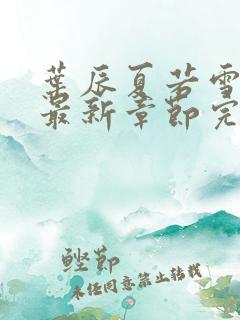 葉辰夏若雪
最新章節完
鰹節
未经同意禁止转载